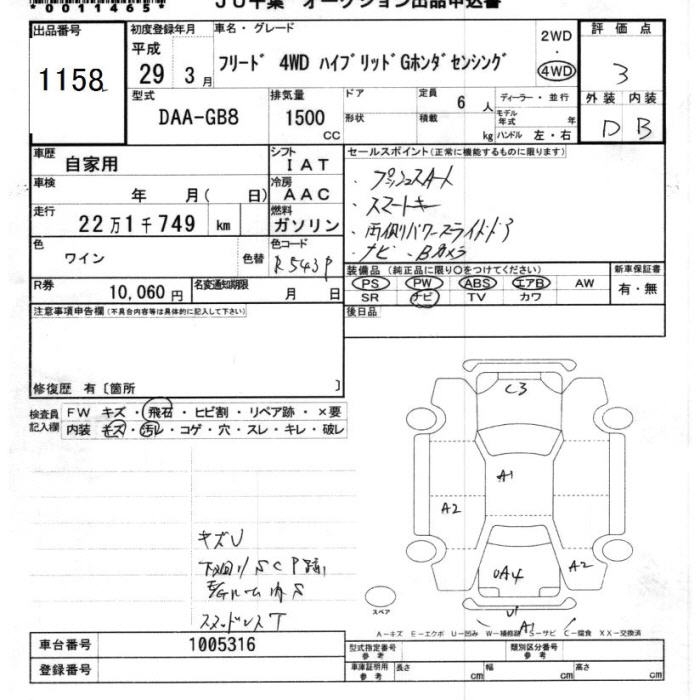 *0011465*
JU千葉 オークション出品申込書
出品番号 1158
初度登録年月 平成 29 3月
車名・グレード フリード 4WD ハイブリッドGホンダセンシング
2WD ・ 4WD
評価点 3
外装 D 内装 B
型式 DAA-GB8
排気量 1500 CC
ドア 定員 6 人
形状 積載 kg
ディーラー・並行
モデル年式 年
ハンドル 左・右
車歴 自家用
シフト IAT
車検 年 月( 日)
冷房 AAC
走行 22万1千749 km
燃料 ガソリン
色 ワイン 色替
色コード R543P
R券 10,060円
名変通知期限 月 日
セールスポイント(正常に機能するものに限ります)
・プッシュスタート
・スマートキー
・両側パワースライドドア
・ナビ・Bカメラ
装備品(純正品に限り〇をつけてください)
PS PW ABS エアB AW
SR ナビ TV カワ
新車保証書 有・無
後日品
注意事項申告欄(不具合内容等は具体的に記入して下さい)
修復歴 有〔箇所 〕
検査員記入欄
FW キズ・飛石・ヒビ割・リペア跡・×要
内装 キズ・汚レ・コゲ・穴・スレ・キレ・破レ
C3
A1
A2
A2
UA4
U1
A1
スペア
キズU
下回りSCP跡
E/Gルーム内S
スタッドレスT
A-キズ E-エクボ U-凹み W-補修跡 S-サビ C-腐食 XX-交換済
車台番号 1005316
登録番号
型式指定番号 参考
類別区分番号 参考
車庫証明用 参考 長さ cm 幅 cm 高さ cm